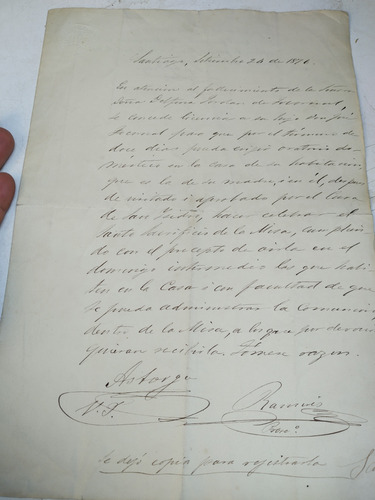 Santiago, Setiembre 24 de 187
En atencion al fallecimiento de la Señora
Doña Delfina de
se concede licencia a su hijo don José
para que por el término de
doce dias pueda erijir oratorio do-
méstico en la casa de su habitacion
que es la de su madre, i en él, despues
de visitado i aprobado por el Cura
de San Isidro, hacer celebrar el
Santo Sacrificio de la Misa, cumplien
do con el precepto de oirla en el
domingo intermedio los que habi-
ten en la Casa i con facultad de que
se pueda administrar la Comunion,
dentro de la Misa, a los que por devocion
quieran recibirla. Tómese razon.
Astorga
V. J.
Ramirez
Srio.
Se dejó copia para rejistrarla